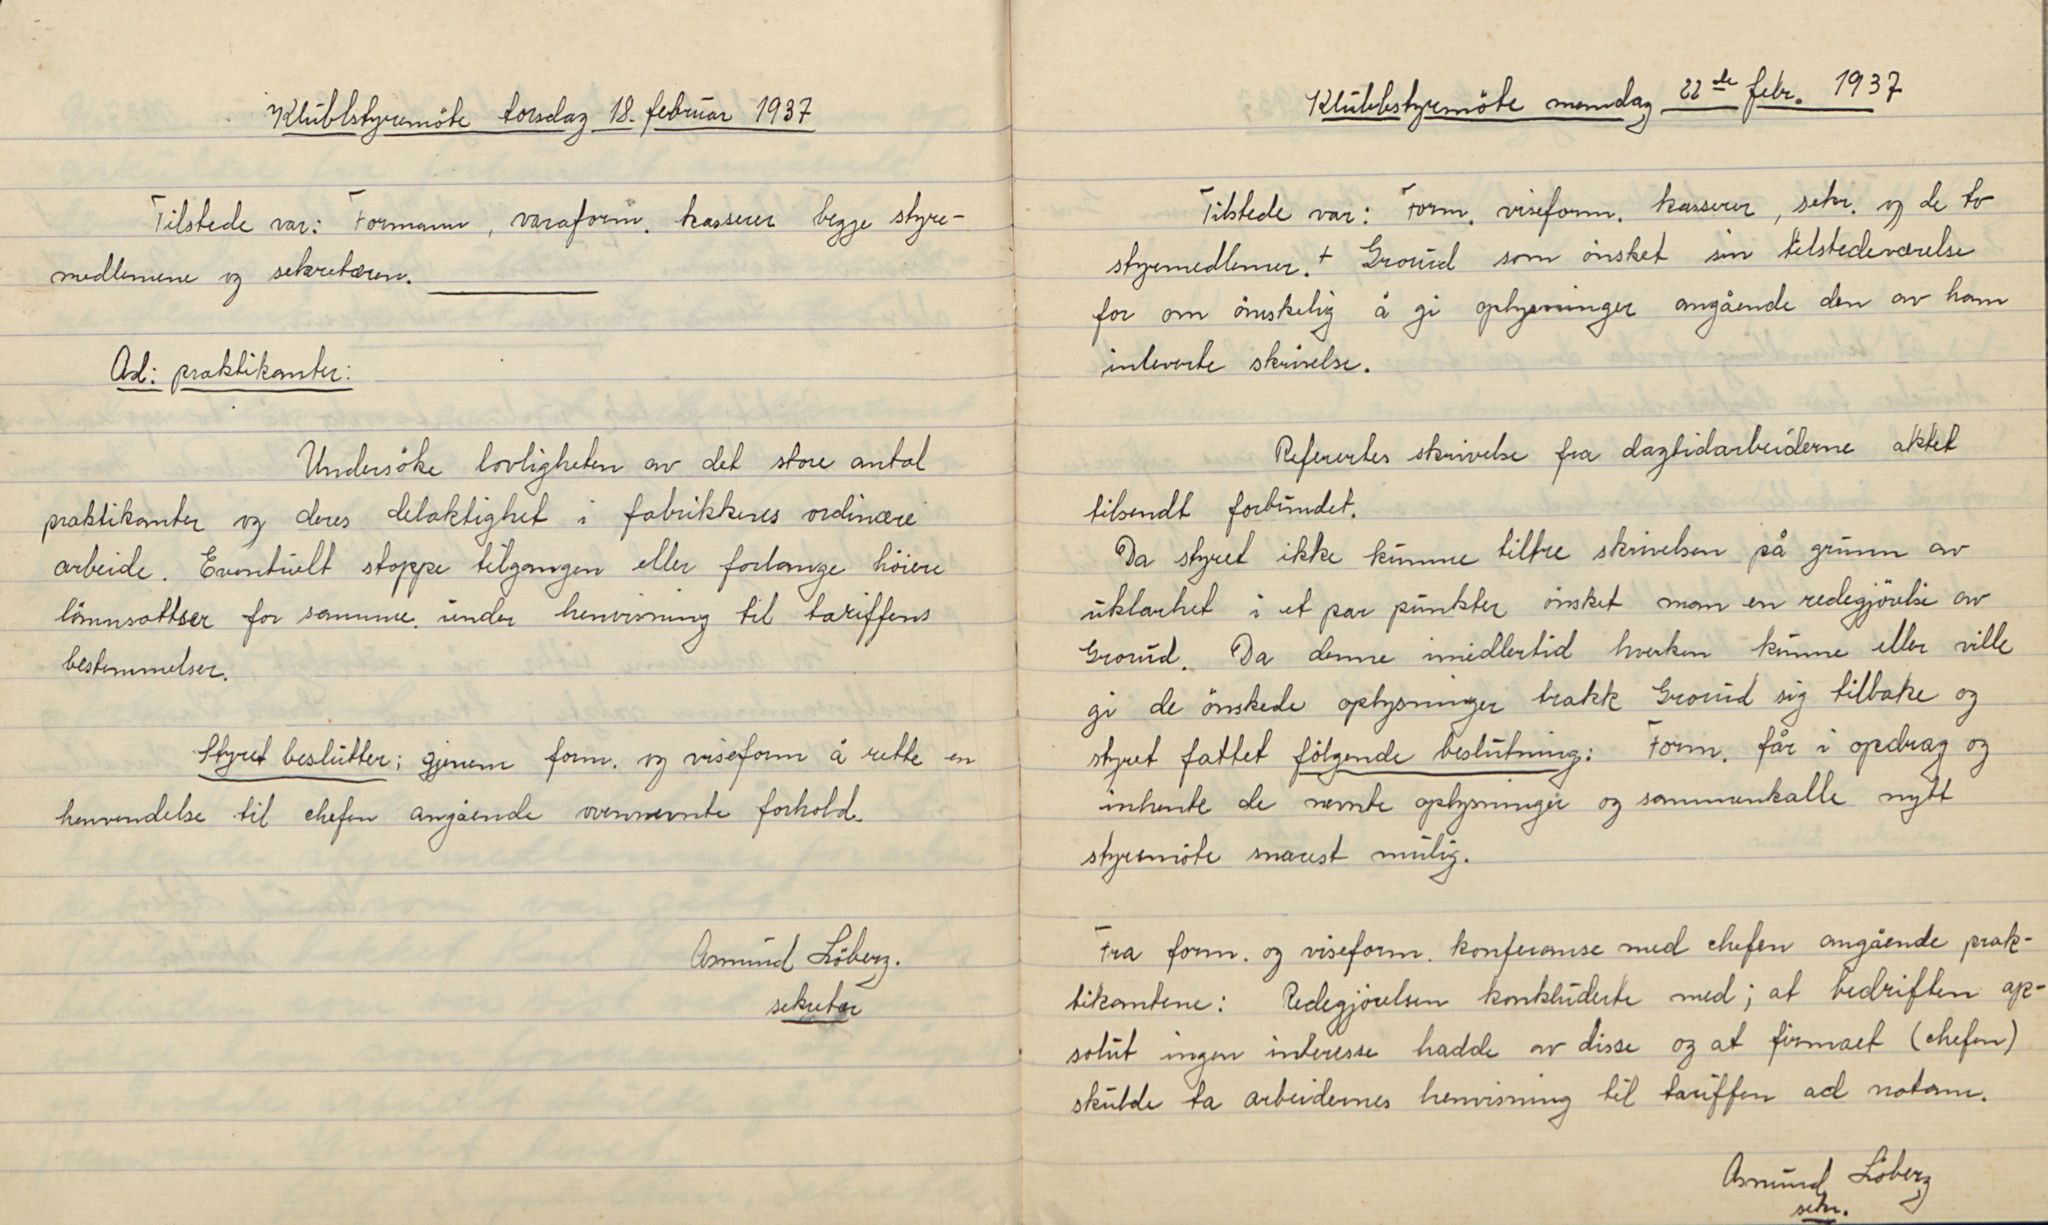 Klubbstyremöte torsdag 18. februar 1937
Tilstede var: Formann, varaform. kasserer begge styre-
medlemene og sekretæren.
Ad: praktikanter:
Undersöke lovligheten av det store antal
praktikanter og deres delaktighet i fabrikkens ordinære
arbeide. Eventuelt stoppe tilgangen eller forlange höiere
lönnsattser for samme. under henvisning til tariffens
bestemmelser.
Styret beslutter; gjenem form. og viseform å rette en
henvendelse til chefen angående ovennevnte forhold.
Asmund Löberg.
sekretær
Klubbstyremöte mandag 22de febr. 1937
Tilstede var: Form. viseform. kasserer, sekr. og de to
styremedlemer. + Grorud som önsket sin tilstedeværelse
for om önskelig å gi oplysninger angående den av ham
inleverte skrivelse.
Referertes skrivelse fra dagtidarbeiderne aktet
tilsendt forbundet.
Da styret ikke kunne tiltre skrivelsen på grunn av
uklarhet i et par punkter önsket man en redegjörelse av
Grorud. Da denne imidlertid hverken kunne eller ville
gi de önskede oplysninger trakk Grorud sig tilbake og
styret fattet fölgende beslutning: Form. får i opdrag og
inhente de nevnte oplysninger og sammenkalle nytt
styremöte snarest mulig.
Fra form. og viseform. konferanse med chefen angående prak-
tikantene: Redegjörelsen konkluderte med; at bedriften ap-
solut ingen interesse hadde av disse og at firmaet (chefen)
skulde ta arbeidernes henvisning til tariffen ad notam.
Asmund Löberg
sekr.